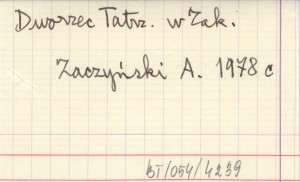 Dworzec Tatrz. w Zak.
Zaczyński A. 1978 c
BT/054/4239